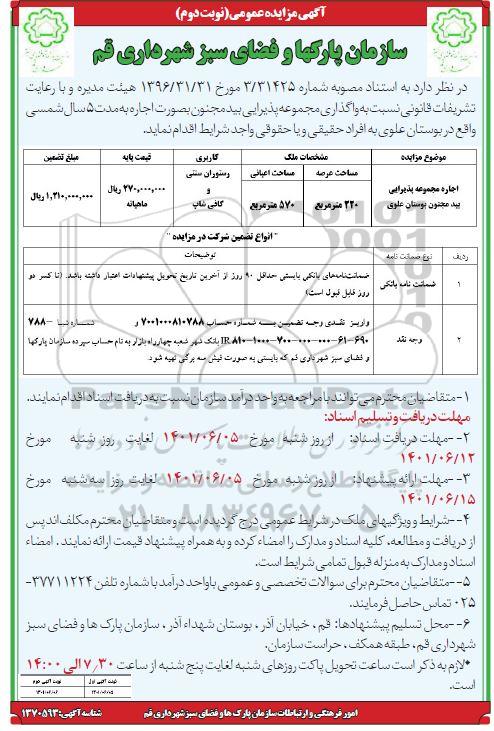 آگهی مزایده عمومی(نوبت دوم)
سازمان پارکها و فضای سبز شهرداری قم
در نظر دارد به استناد مصوبه شماره ۳/۳۱۴۲۵ مورخ ۱۳۹۶/۳۱/۳۱ هیئت مدیره و با رعایت
تشریفات قانونی نسبت به واگذاری مجموعه پذیرایی بید مجنون بصورت اجاره به مدت ۵ سال شمسی
واقع در بوستان علوی به افراد حقیقی و یا حقوقی واجد شرایط اقدام نماید.
موضوع مزایده مشخصات ملک کاربری قیمت پایه مبلغ تضمین
مساحت عرصه مساحت اعیانی
اجاره مجموعه پذیرایی بید مجنون بوستان علوی ۲۲۰ مترمربع ۵۷۰ مترمربع رستوران سنتی و کافی شاپ ۲۷۰,۰۰۰,۰۰۰ ریال ماهیانه ۱,۲۱۰,۰۰۰,۰۰۰ ریال
" انواع تضمین شرکت در مزایده "
ردیف نوع ضمانت نامه توضیحات
۱ ضمانت نامه بانکی ضمانت‌نامه‌های بانکی بایستی حداقل ۹۰ روز از آخرین تاریخ تحویل پیشنهادات اعتبار داشته باشد. (تا کسر دو
روز قابل قبول است)
۲ وجه نقد واریز نقدی وجه تضمین به شماره حساب ۷۰۰۱۰۰۰۸۱۰۷۸۸ و شماره شبا ۷۸۸-
۶۹۰-۰۶۱-۰۰۰-۰۰۰-۷۰۰-۱۰۰۰-۸۱۰ IR بانک شهر شعبه چهارراه بازار به نام حساب سپرده سازمان پارکها
و فضای سبز شهرداری قم که بایستی به صورت فیش سه برگی تهیه شود.
۱-متقاضیان محترم می توانند با مراجعه به واحد درآمد سازمان نسبت به دریافت اسناد اقدام نمایند.
مهلت دریافت و تسلیم اسناد:
۲--مهلت دریافت اسناد: از روز شنبه مورخ ۱۴۰۱/۰۶/۰۵ لغایت روز شنبه مورخ
۱۴۰۱/۰۶/۱۲
۳--مهلت ارائه پیشنهاد: از روز شنبه مورخ ۱۴۰۱/۰۶/۰۵ لغایت روز سه شنبه مورخ
۱۴۰۱/۰۶/۱۵
۴--شرایط و ویژگیهای ملک در شرایط عمومی درج گردیده است و متقاضیان محترم مکلف‌اند پس
از دریافت و مطالعه، کلیه اسناد و مدارک را امضاء کرده و به همراه پیشنهاد قیمت ارائه نمایند . امضاء
اسناد و مدارک به منزله قبول تمامی شرایط است.
۵--متقاضیان محترم برای سوالات تخصصی و عمومی با واحد درآمد با شماره تلفن ۳۷۷۱۱۲۲۴-
۰۲۵ تماس حاصل فرمایند.
۶--محل تسلیم پیشنهادها: قم ، خیابان آذر ، بوستان شهداء آذر ، سازمان پارک ها و فضای سبز
شهرداری قم، طبقه همکف ، حراست سازمان.
*لازم به ذکر است ساعت تحویل پاکت روزهای شنبه لغایت پنج شنبه از ساعت ۷/۳۰ الی ۱۴:۰۰
است.
نوبت چاپ اول نوبت چاپ دوم
۱۴۰۱/۰۵/۰۵ ۱۴۰۱/۰۶/۰۶
امور فرهنگی و ارتباطات سازمان پارک ها و فضای سبز شهرداری قم
شناسه آگهی: ۱۳۷۰۵۹۳